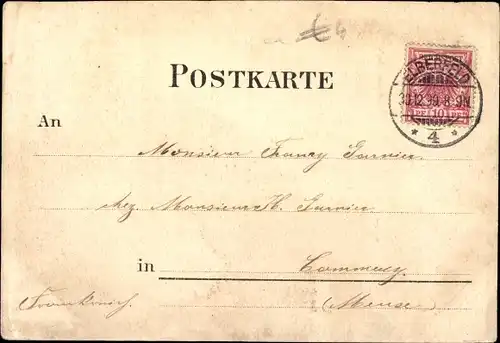 POSTKARTE
ELBERFELD
30.12.99.8-9N.
* 4 *
PF. 10 PF.
An
Monsieur Franz Garnier
chez Monsieur H. Garnier
in Commercy
Frankreich (Meuse)